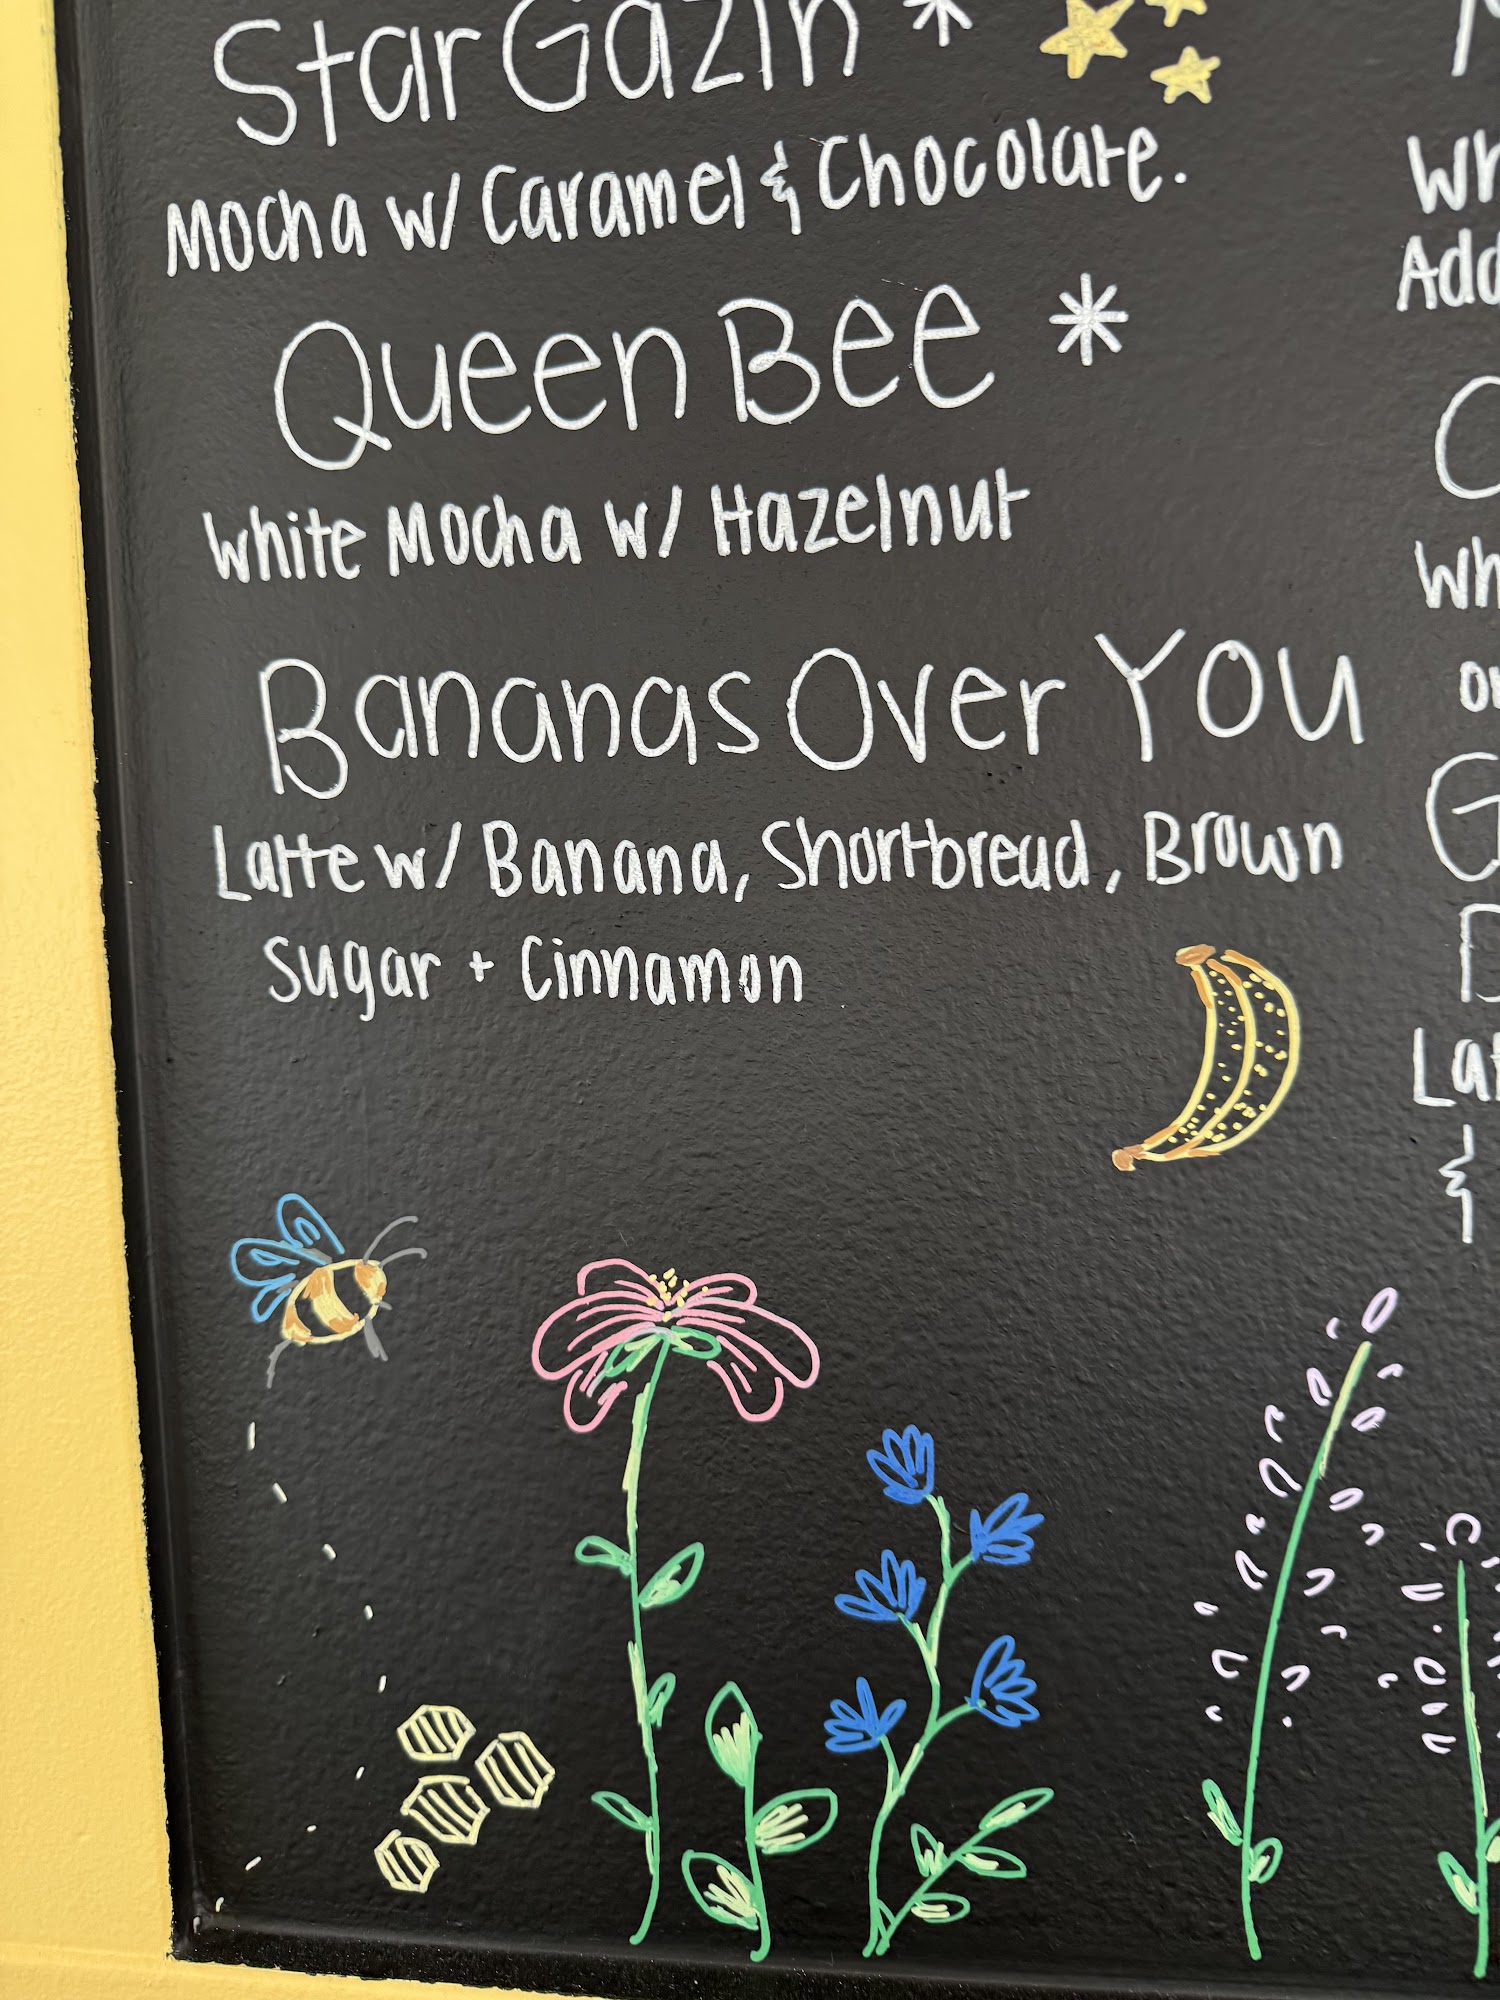 Star Gazin *
Mocha w/ Caramel & Chocolate.
Queen Bee *
White Mocha w/ Hazelnut
Bananas Over You
Latte w/ Banana, Shortbread, Brown
Sugar + Cinnamon
Add
&